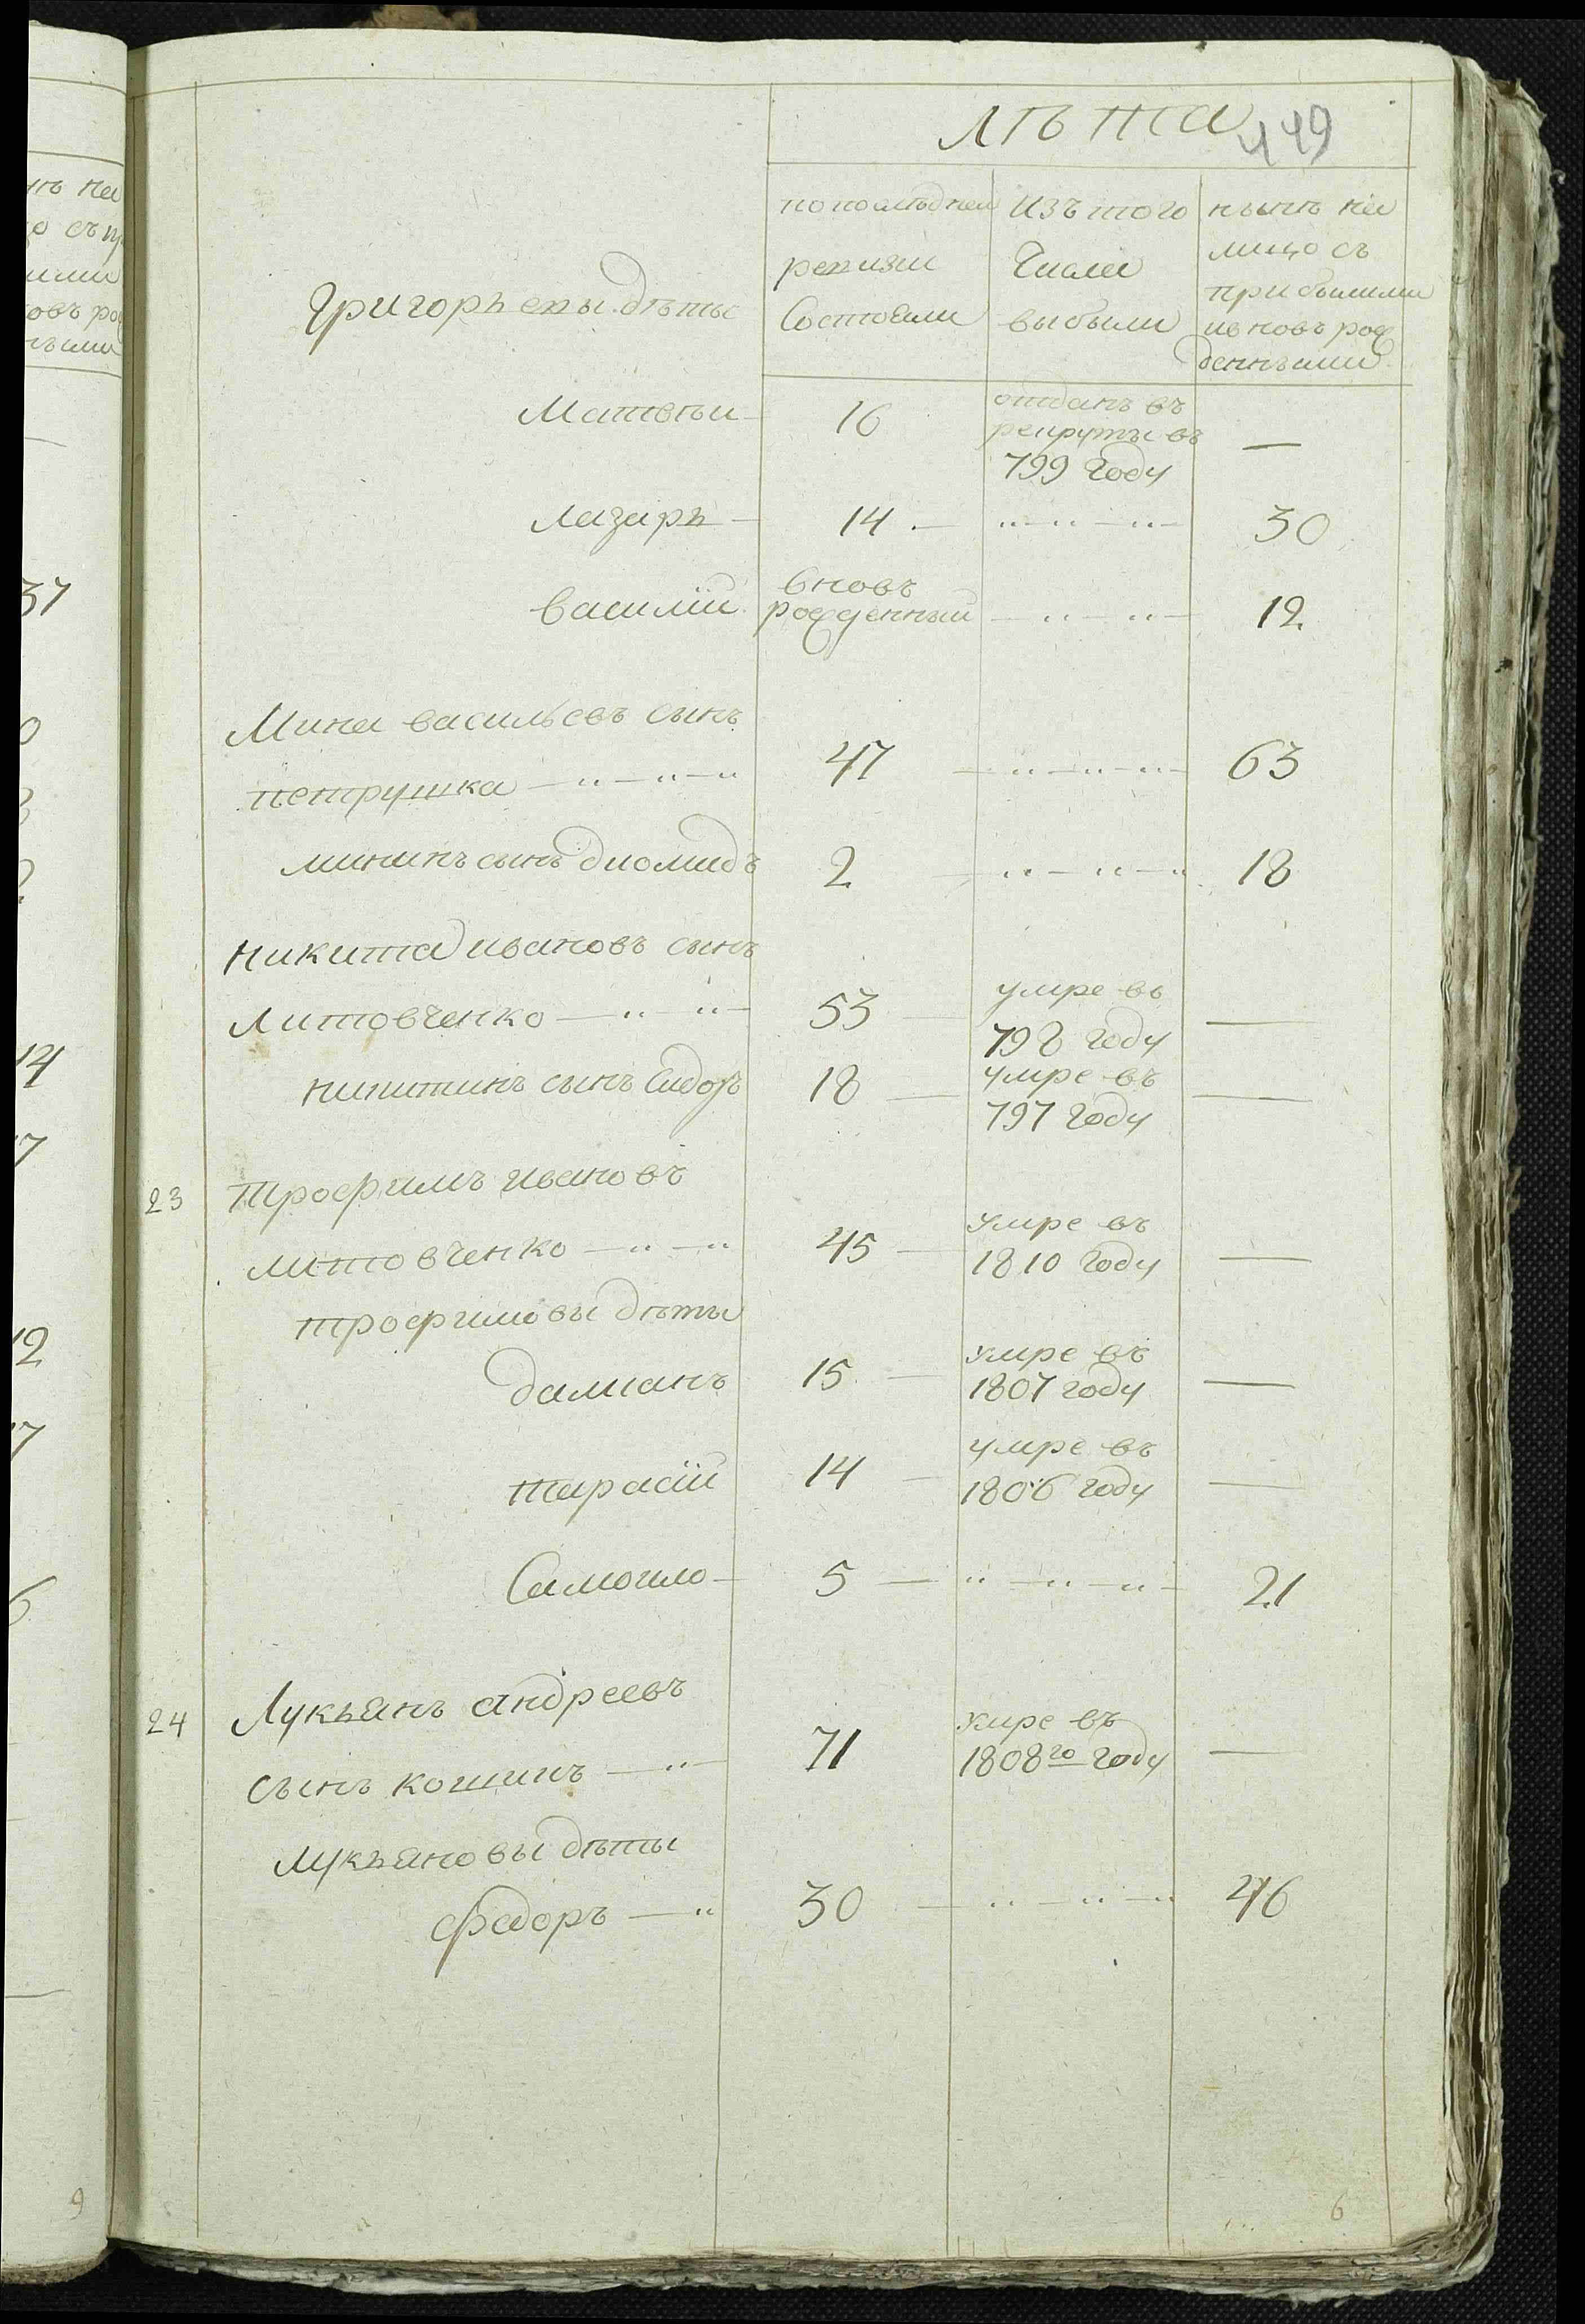 лѣта
449
по последней
ревизіи
Состояли
Изъ того
Числа
выбыли
нынѣ на
лицо съ
прибылыми
и вновь рож
денными
Григорьевы дѣти
Матвѣй 16 отданъ въ
рекруты въ
799 Году —
Лазарь 14 30
Василій вновь
рожденный 12
Мина васильевъ сынъ
петрушка 47 63
мининъ сынъ диомидъ 2 18
Никита ивановъ сынъ
Литовченко 53 умре въ
798 году —
никитинъ сынъ Сидоръ 18 умре въ
797 Году —
23 Трофимъ ивановъ
литовченко 45 умре въ
1810 Году —
трофимовы дѣти
дамианъ 15 умре въ
1807 году —
тарасій 14 умре въ
1806 году —
Самоило 5 21
24 Лукьянъ андреевъ
сынъ кошинъ 71 умре въ
1808го Году —
лукьяновы дѣти
федоръ 30 46
6
нѣ на
о съ п
ими
овъ ро
ными
37
0
14
7
12
7
6
9